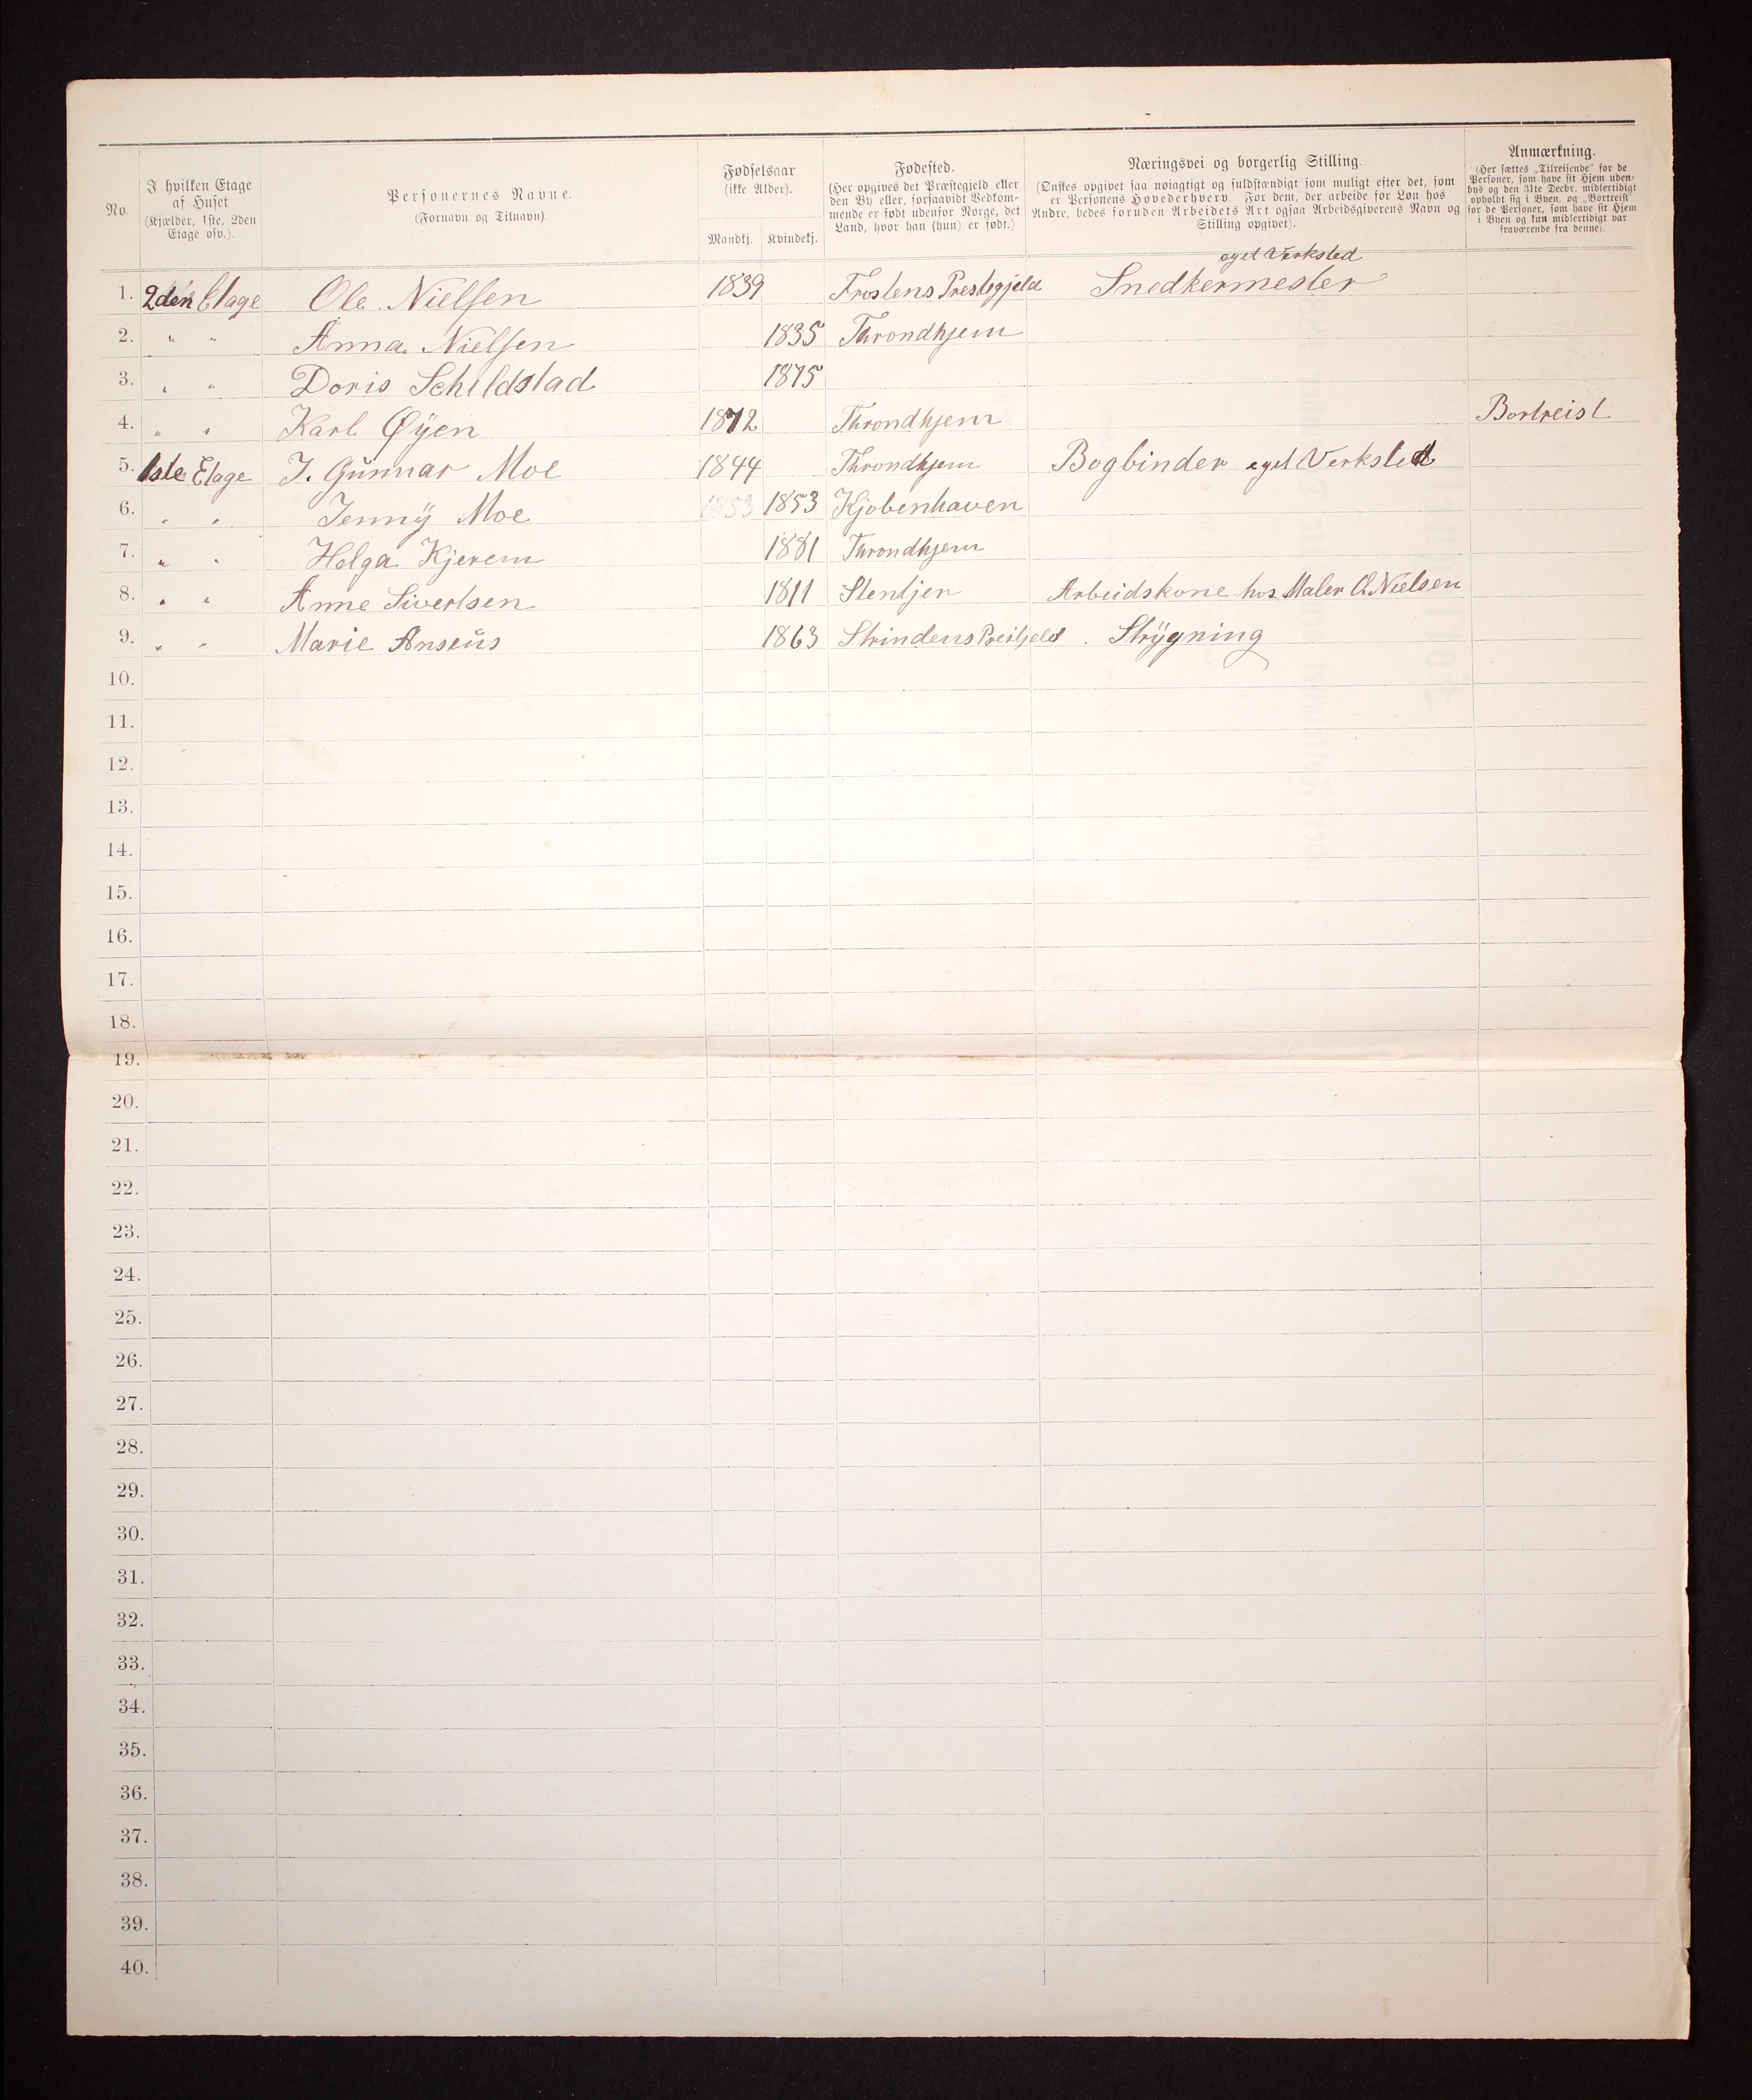 No.
I hvilken Etage af Huset (Kjælder, 1ste, 2den Etage osv.).
Personernes Navne. (Fornavn og Tilnavn).
Fødselsaar (ikke Alder).
Mandkj. Kvindekj.
Fødested. (Her opgives det Præstegjeld eller den By eller, forsaavidt Vedkommende er født udenfor Norge, det Land, hvor han (hun) er født.)
Næringsvei og borgerlig Stilling. (Ønskes opgivet saa nøiagtigt og fuldstændigt som muligt efter det, som er Personens Hovederhverv. For dem, der arbeide for Løn hos Andre, bedes foruden Arbeidets Art ogsaa Arbeidsgiverens Navn og Stilling opgivet).
Anmærkning. (Her sættes „Tilreisende" for de Personer, som have sit Hjem udenbys og den 31te Decbr. midlertidigt opholdt sig i Byen, og „Bortreist" for de Personer, som have sit Hjem i Byen og kun midlertidigt var fraværende fra denne).
eget Verksted
1. 2den Etage Ole Nielsen 1839 Frostens Prestegjeld Snedkermester
2. " " Anna Nielsen 1835 Throndhjem
3. " " Doris Schildstad 1875
4. " " Karl Øÿen 1872 Throndhjem Bortreist
5. 1ste Etage J. Gunnar Moe 1844 Throndhjem Bogbinder eget Verksted
6. " " Jennÿ Moe 1853 1853 Kjøbenhaven
7. " " Helga Kjerem 1881 Throndhjem
8. " " Anne Sivertsen 1811 Stenkjer Arbeidskone hos Maler O. Nielsen
9. " " Marie Anseus 1863 Strindens Prestjeld Strÿgning
10.
11.
12.
13.
14.
15.
16.
17.
18.
19.
20.
21.
22.
23.
24.
25.
26.
27.
28.
29.
30.
31.
32.
33.
34.
35.
36.
37.
38.
39.
40.